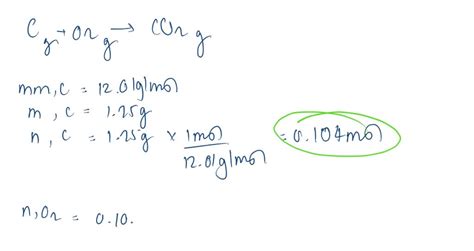 C g + O2 g → CO2 g
mm, C = 12.01g/mol
m , C = 1.25g
n , C = 1.25g × 1mol / 12.01g/mol = 0.104mol
n, O2 = 0.10.